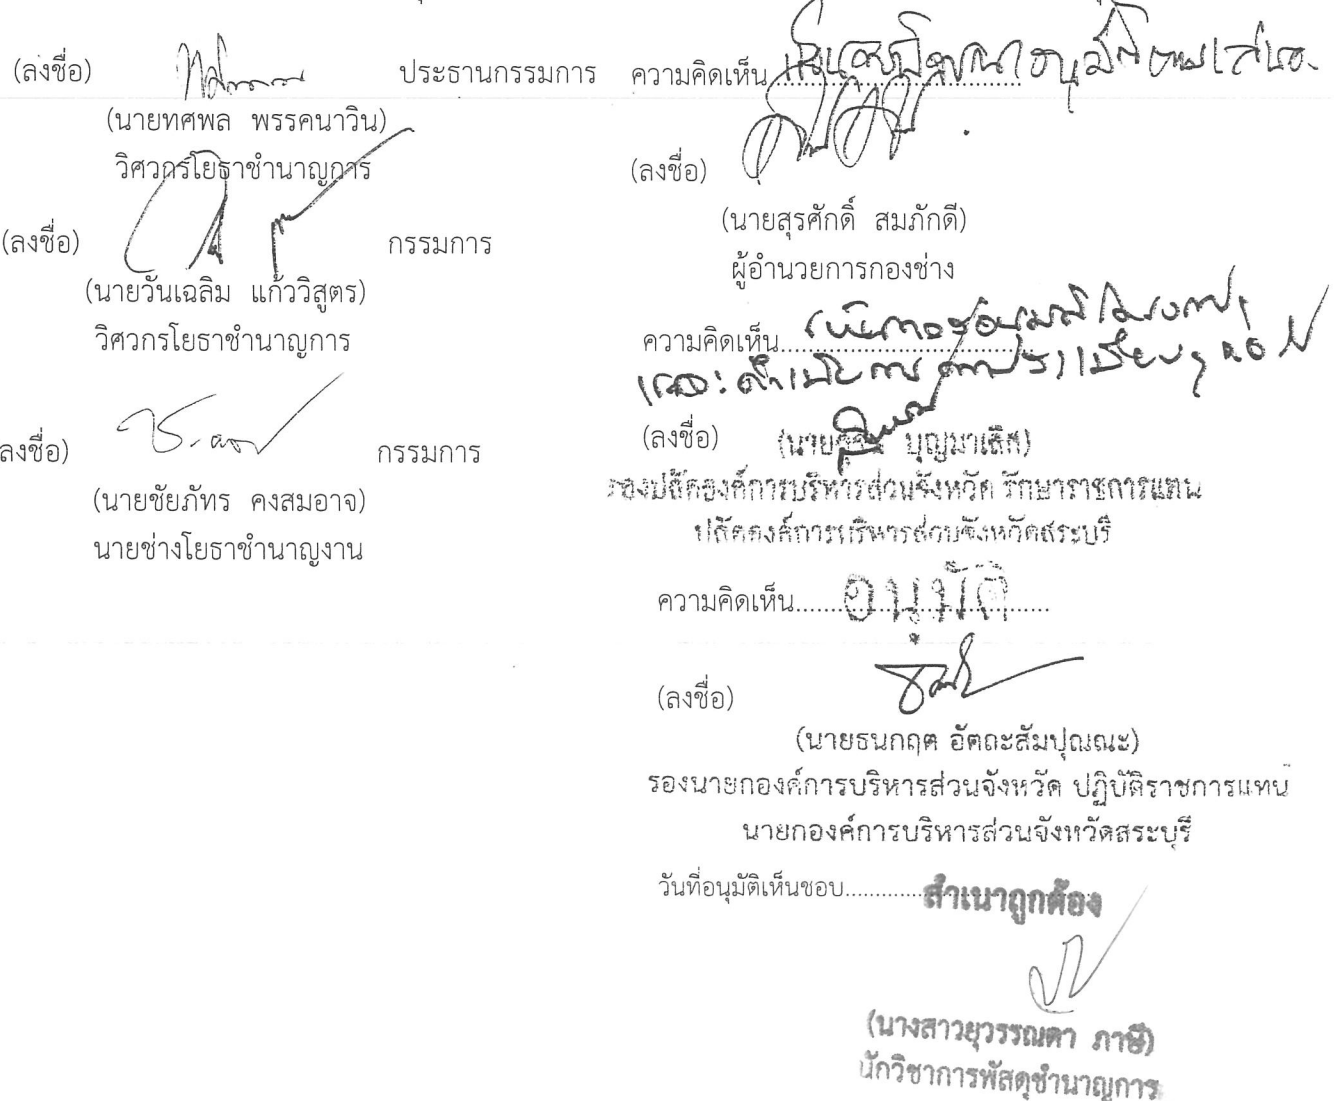 (ลงชื่อ) ประธานกรรมการ
(นายทศพล พรรคนาวิน)
วิศวกรโยธาชำนาญการ
(ลงชื่อ) กรรมการ
(นายวันเฉลิม แก้ววิสูตร)
วิศวกรโยธาชำนาญการ
(ลงชื่อ) กรรมการ
(นายชัยภัทร คงสมอาจ)
นายช่างโยธาชำนาญงาน
ความคิดเห็น
(ลงชื่อ)
(นายสุรศักดิ์ สมภักดี)
ผู้อำนวยการกองช่าง
ความคิดเห็น
(ลงชื่อ) บุญมาเลิศ)
รองปลัดองค์การบริหารส่วนจังหวัด รักษาราชการแทน
ปลัดองค์การบริหารส่วนจังหวัดสระบุรี
ความคิดเห็น......อนุมัติ......
(ลงชื่อ)
(นายธนกฤต อัตถะสัมปุณณะ)
รองนายกองค์การบริหารส่วนจังหวัด ปฏิบัติราชการแทน
นายกองค์การบริหารส่วนจังหวัดสระบุรี
วันที่อนุมัติเห็นชอบ.............
สำเนาถูกต้อง
(นางสาวยุวรรณดา ภาษี)
นักวิชาการพัสดุชำนาญการ